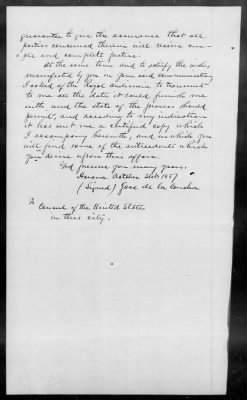 guarantee to give the assurance that all
parties concerned therein will receive am-
ple and complete justice.
At the same time and to satisfy the wishes
manifested by you in your said communication
I asked of the Royal Audiencia to transmit
to me all the data it could furnish me
with and the state of the process should
permit, and according to my indication
it has sent me a certified copy which
I accompany herewith, and in which you
will find some of the antecedents which
you desire upon this affair.
God preserve you many years.
Havana October 31st 1857
(Signed) José de la Concha
To
Consul of the United States
in this city.